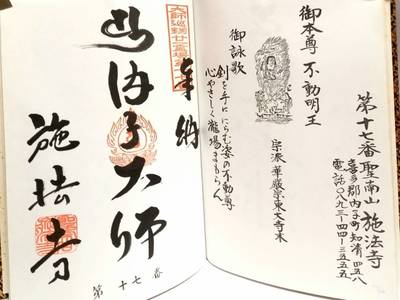 第十七番聖南山 施法寺
喜多郡内子町知清四五八
電話〇八九三-四四-三五五五
御本尊 不動明王
宗派 華厳宗東大寺末
御詠歌
剣を手にらむ姿の不動尊
心やさしく瀧場まもらん
奉納
大師
施法寺
第十七番